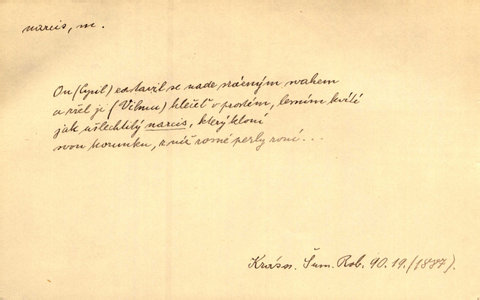 narcis, m.
On (Cyril) zastavil se nade srázným svahem
a zřel je (Vilmu) klečeti v prostém, lesním kvítí
jak ušlechtilý narcis, který kloní
svou korunku, z níž rosné perly roní...
Krásn. Šum. Rob. 90.19. (1887).